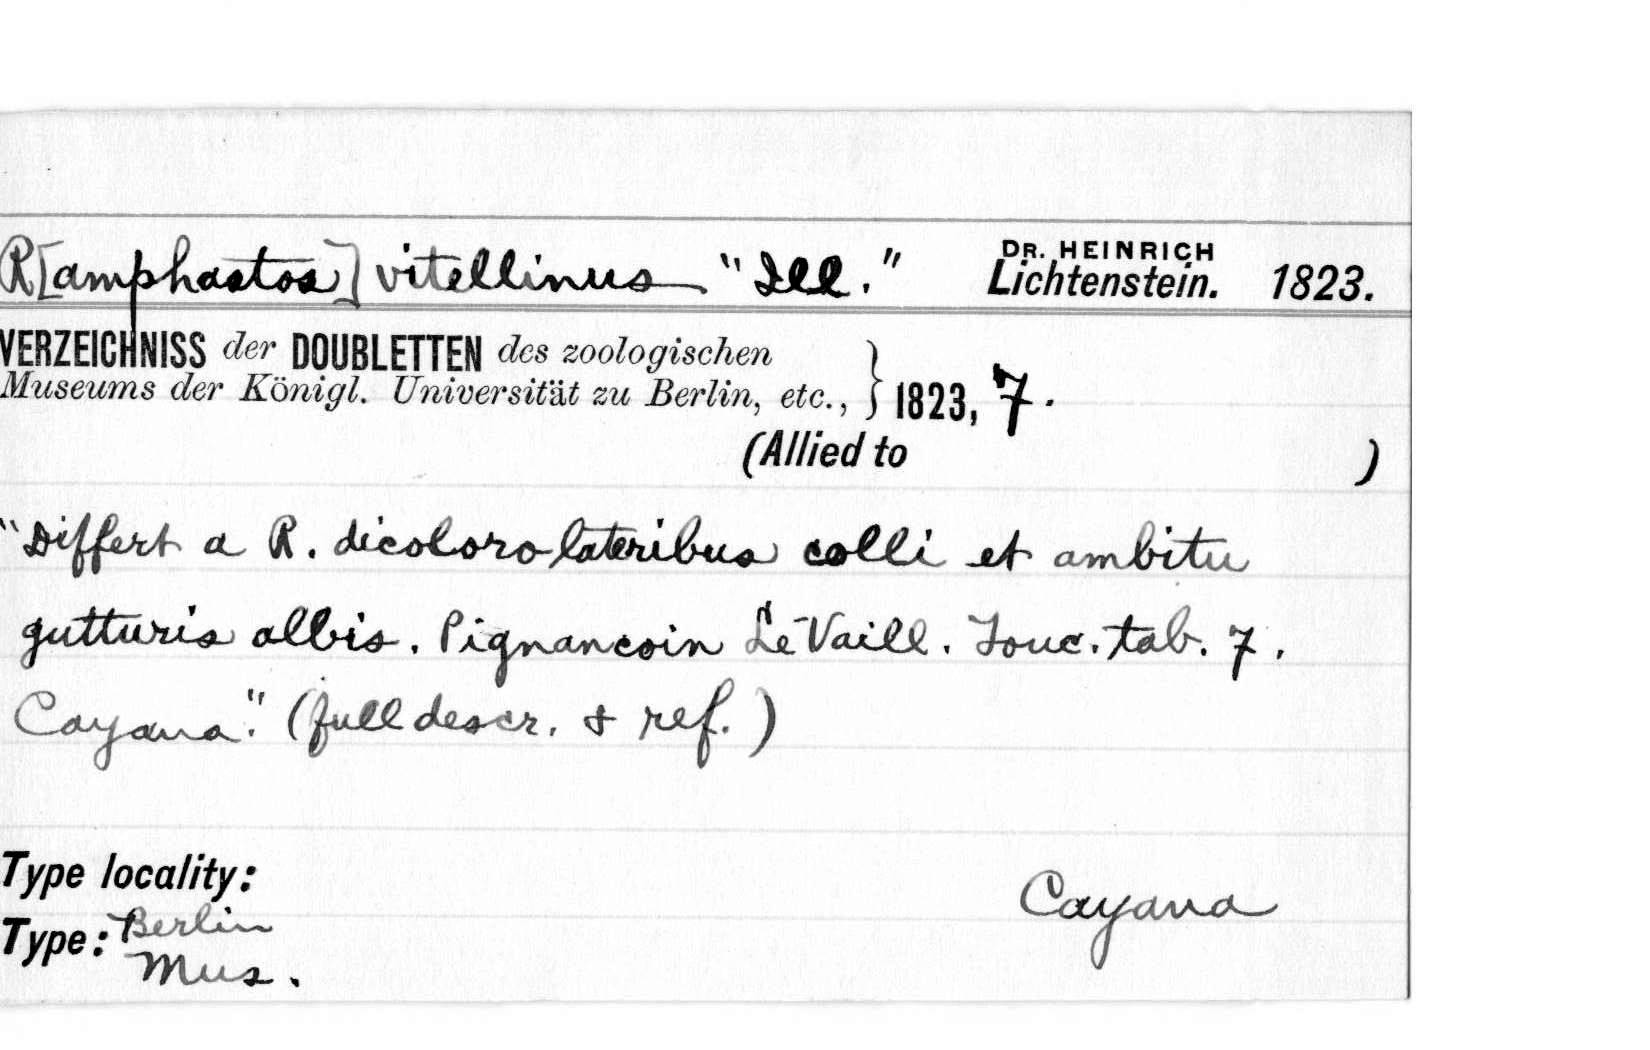 R[amphastos] vitellinus "Ill." DR. HEINRICH Lichtenstein. 1823.
VERZEICHNISS der DOUBLETTEN des zoologischen
Museums der Königl. Universität zu Berlin, etc., } 1823, 7.
(Allied to )
"Differt a R. dicoloro lateribus colli et ambitu
gutturis albis. Pignancoin Le Vaill. Touc. tab. 7.
Cayana." (full descr. & ref.)
Type locality: Cayana
Type: Berlin
Mus.